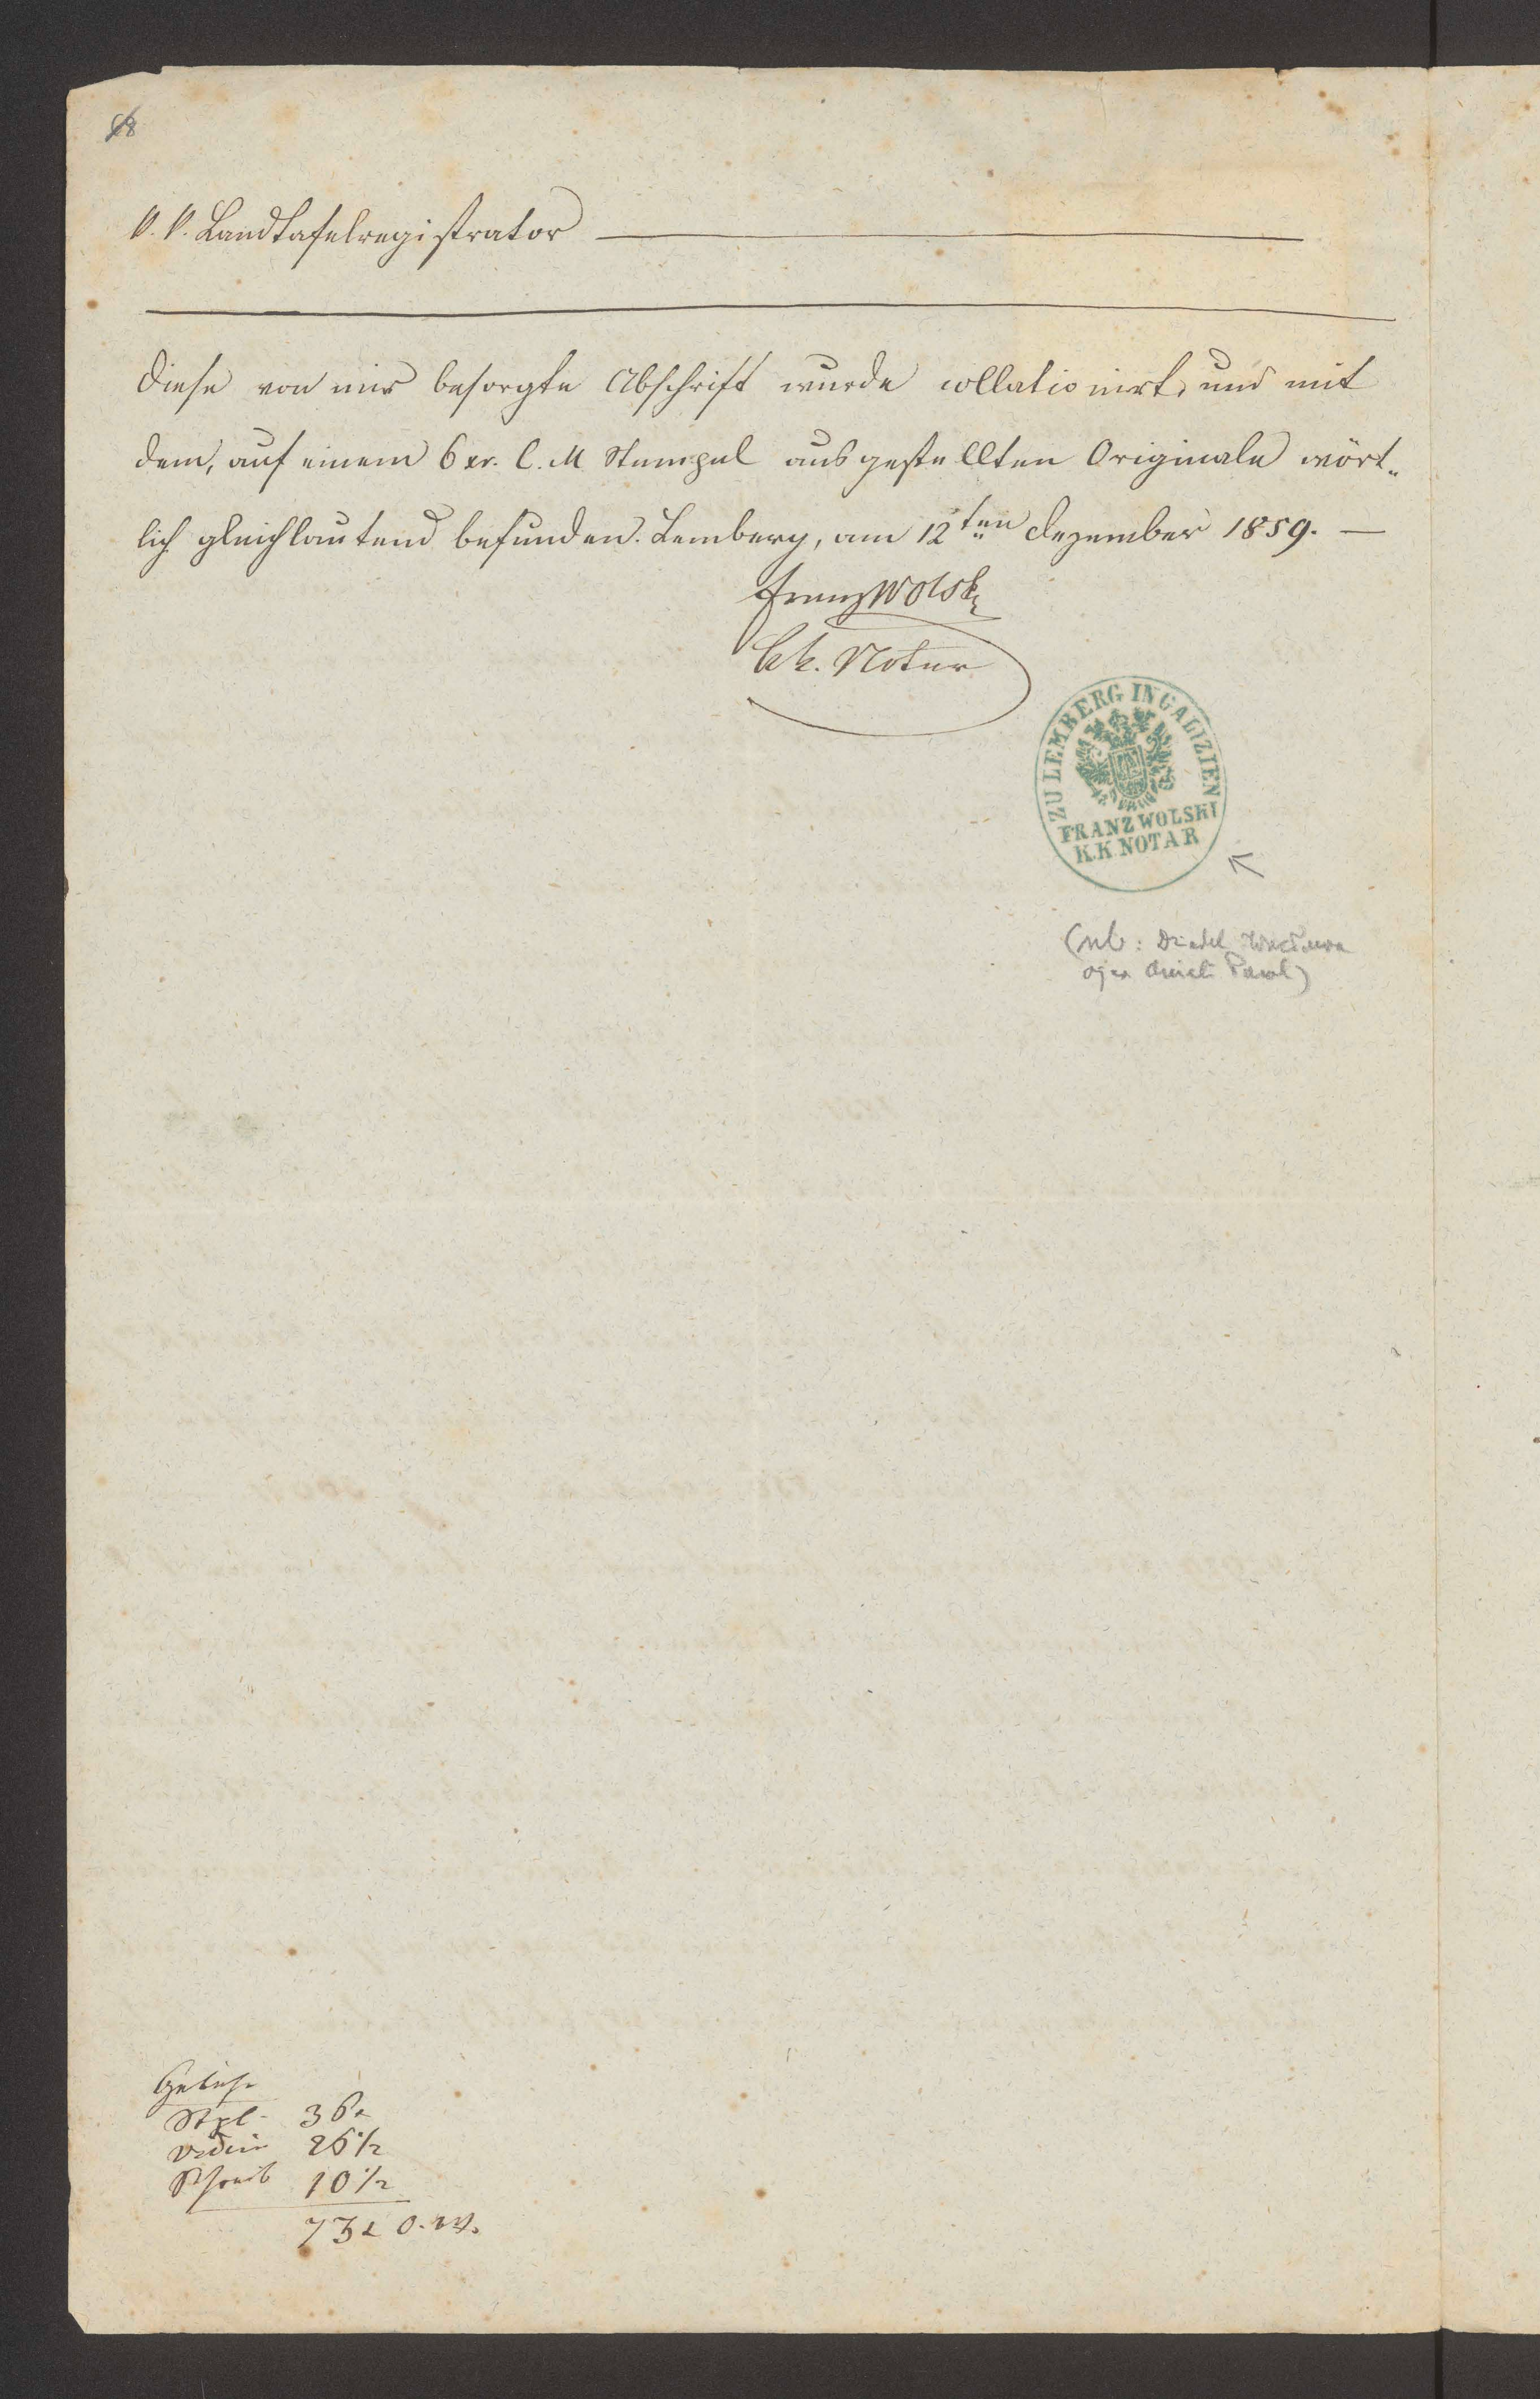 K. K. Landtafelregistrator
Diese von mir besorgte Abschrift wurde collationirt, und mit
dem, auf einem 6 xr. C. M Stempel ausgestellten Originale wört„
lich gleichlautend befunden. Lemberg, am 12ten Dezember 1859. —
Franz Wolski
kk. Notar
ZU LEMBERG IN GALIZIEN
FRANZ WOLSKI
K.K. NOTAR
(nb: Dziadek Wacława
ojca
Gebühr
Stpl. 36
Vidim 26 1/2
Schreib 10 1/2
73 ö. W.